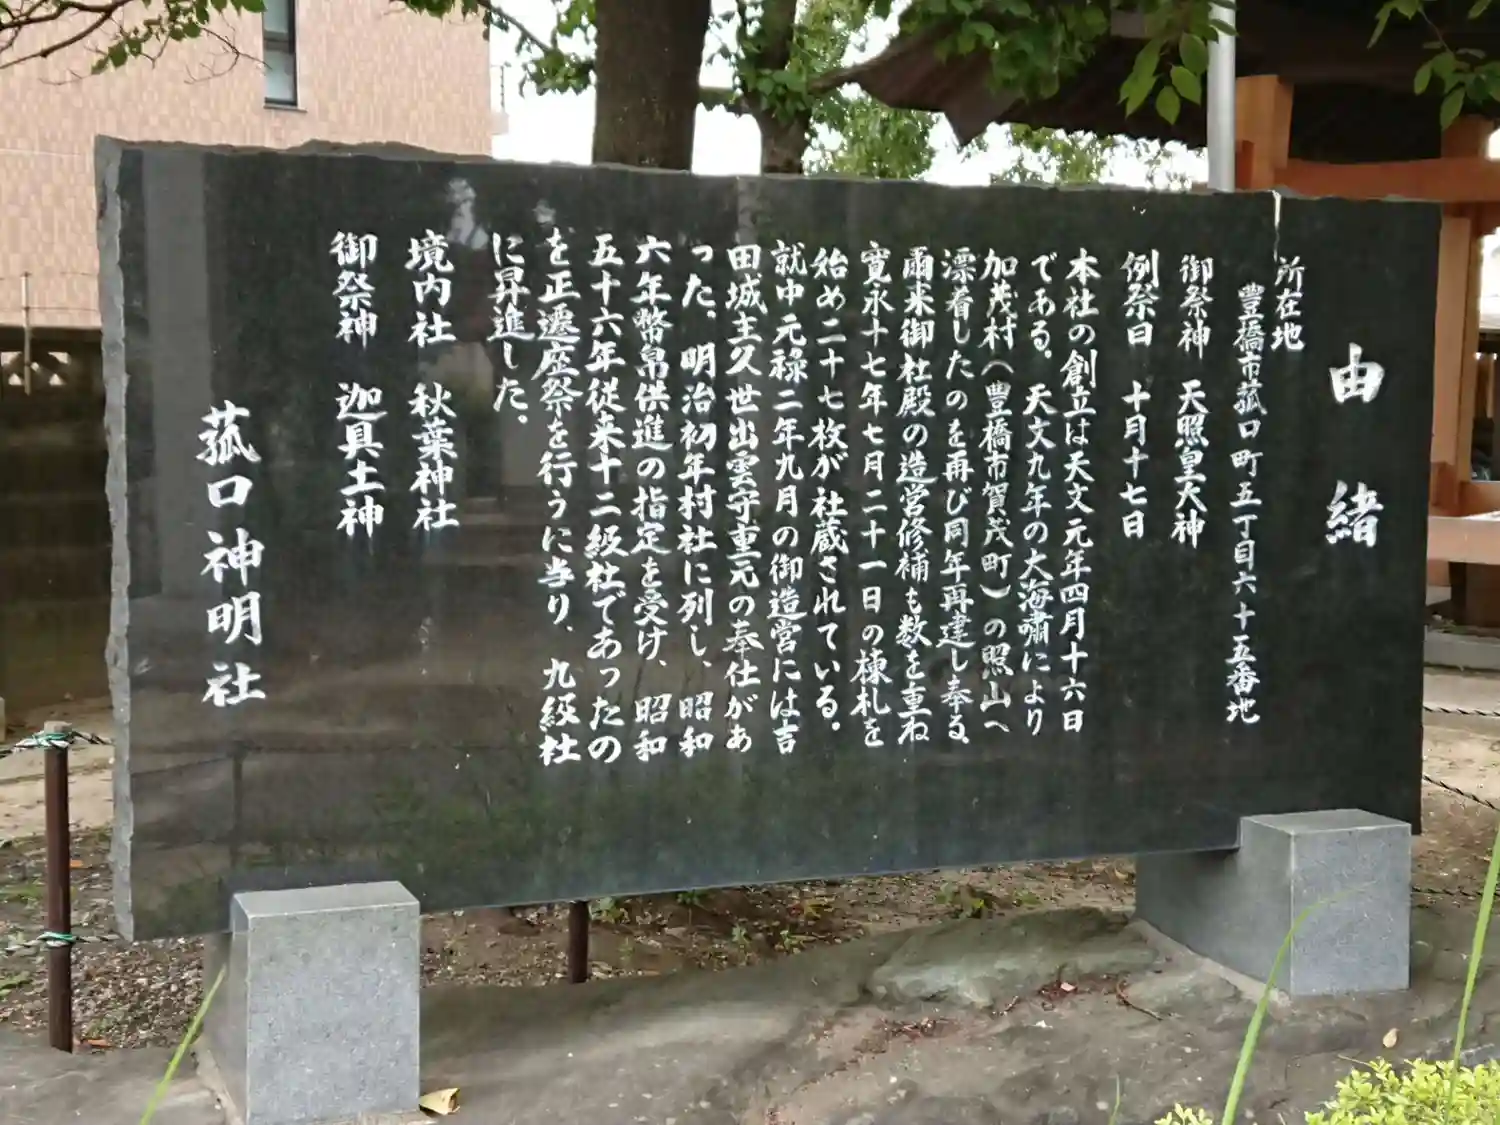 由緒
所在地
豊橋市菰口町五丁目六十五番地
御祭神 天照皇大神
例祭日 十月十七日
本社の創立は天文元年四月十六日
である。天文九年の大海嘯により
加茂村(豊橋市賀茂町)の照山へ
漂着したのを再び同年再建し奉る。
爾来御社殿の造営修補も数を重ね
寛永十七年七月二十一日の棟札を
始め二十七枚が社蔵されている。
就中元禄二年九月の御造営には吉
田城主久世出雲守重元の奉仕があ
った。明治初年村社に列し、昭和
六年幣帛供進の指定を受け、昭和
五十六年従来十二級社であったの
を正遷座祭を行うに当り、九級社
に昇進した。
境内社 秋葉神社
御祭神 迦具土神
菰口神明社